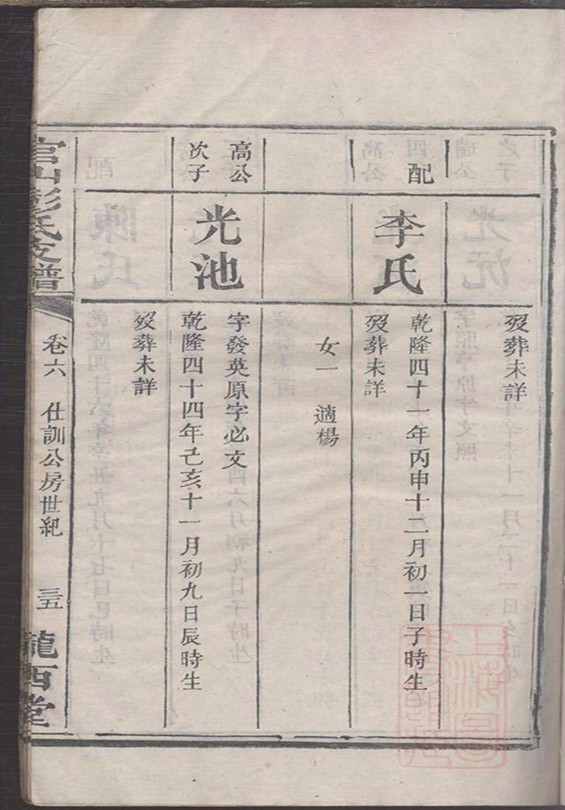 歿葬未詳
配
李氏
乾隆四十一年丙申十二月初一日子時生
歿葬未詳
女一 適楊
高公
次子
光池
字發英原字必文
乾隆四十四年己亥十一月初九日辰時生
歿葬未詳
官山彭氏支譜
卷六 仕訓公房世紀 三五
隴西堂